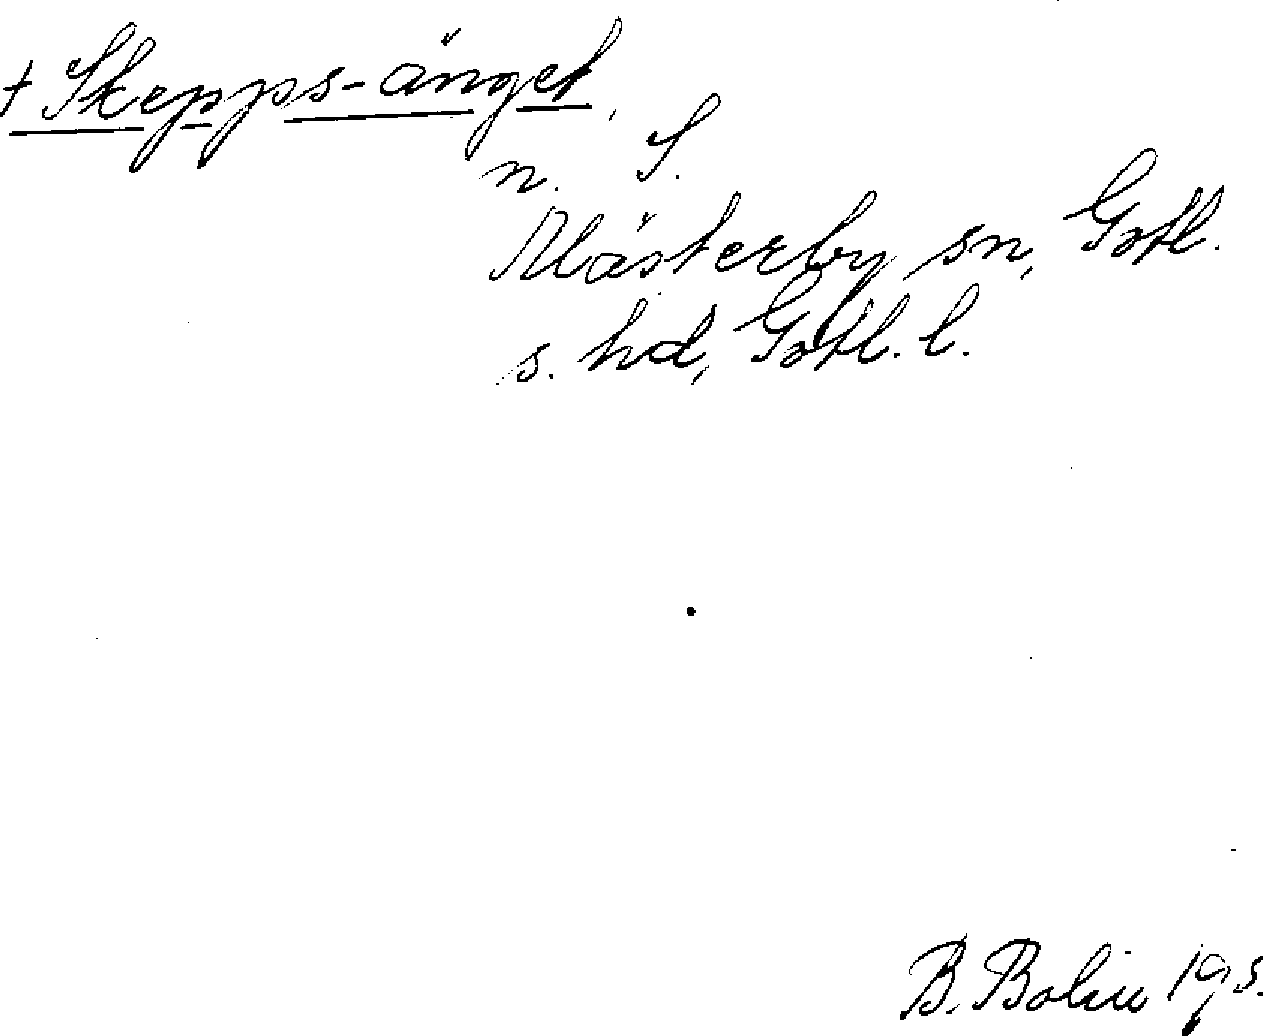 + Skepps-änget,
n. S.
Mästerby sn, Gotl.
s. hd, Gotl. l.
B. Bolin 193